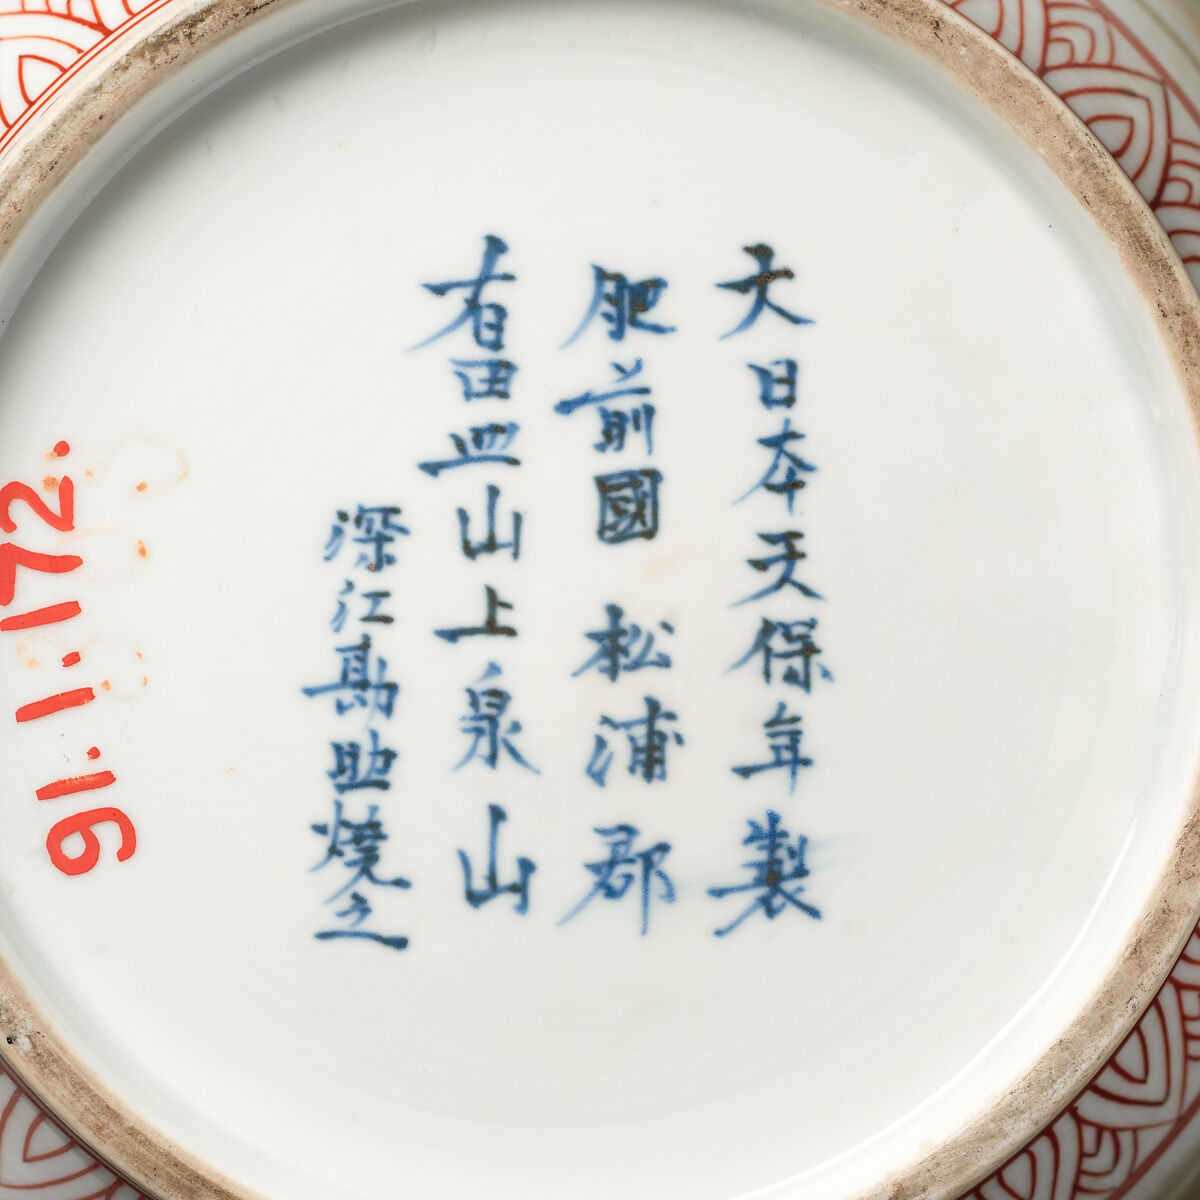 大日本天保年製
肥前國松浦郡
有田皿山上泉山
深江勘助焼之
91.1.172.